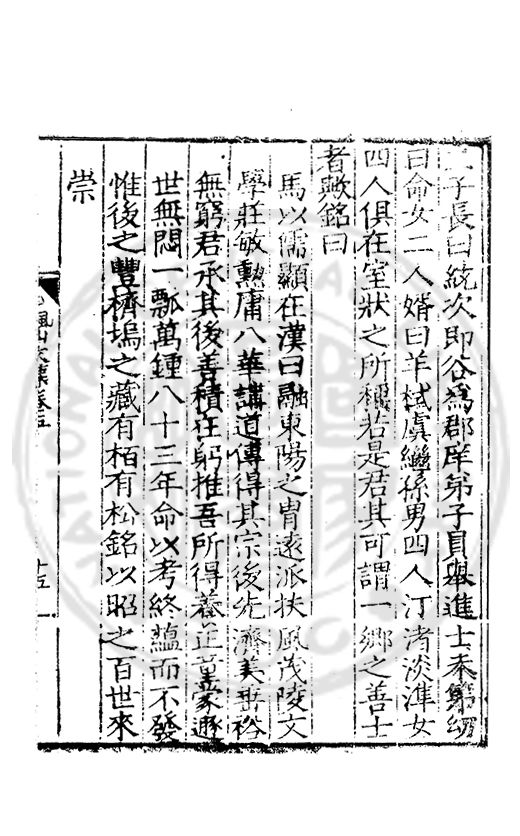 二子長曰統次即谷爲郡庠弟子員舉進士未第幼
曰命女二人婿曰羊棫虞繼孫男四人汀渚淡準女
四人俱在室狀之所稱若是君其可謂一鄉之善士
者歟銘曰
馬以儒顯在漢曰融東陽之胄遠派扶風茂陵文
學莊敏勲庸八華講道傳得其宗後先濟美垂裕
無窮君承其後善積在躬推吾所得養正童蒙遯
世無悶一瓢萬鍾八十三年命以考終藴而不發
惟後之豐櫅塢之藏有栢有松銘以昭之百世來
崇
風山文集卷五
十五